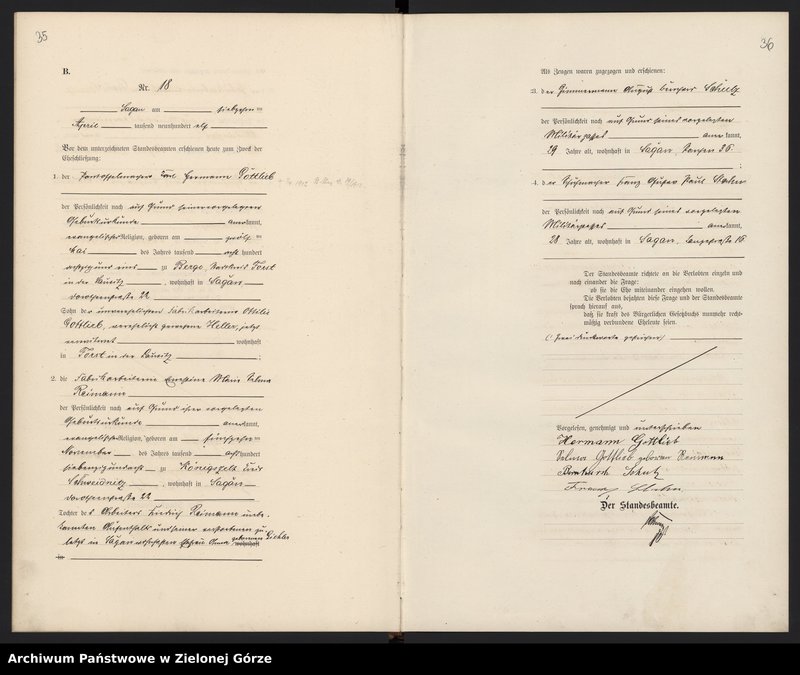 35
B.
Nr. 18
Sagan am siebzehn ten
April tausend neunhundert elf
Vor dem unterzeichneten Standesbeamten erschienen heute zum Zweck der
Eheschließung:
1. der Pantoffelmacher Hermann Gottlieb
der Persönlichkeit nach auf Grund seiner vorgelegten
Geburtsurkunde anerkannt,
evangelischer Religion, geboren am zwölften
Mai des Jahres tausend acht hundert
achtzig und zu Berge, Forst
in der Lausitz, wohnhaft in Sagan
Dorotheenstraße 22
Sohn der unverehelichten Fabrikarbeiterin Ottilie
Gottlieb, verehelicht gewesene Heller, jetzt
verwitwet wohnhaft
in Forst in der Lausitz
2. die Fabrikarbeiterin Ernestine Maria Selma
Reimann
der Persönlichkeit nach auf Grund ihrer vorgelegten
Geburtsurkunde anerkannt,
evangelischer Religion, geboren am fünfzehn ten
November des Jahres tausend acht hundert
siebenzig und acht zu Königszelt Kreis
Schweidnitz, wohnhaft in Sagan
Dorotheenstraße 22
Tochter des Arbeiters Reimann unbe-
kannten Aufenthalts und seiner verstorbenen zu
letzt in Sagan wohnhaften Ehefrau Anna geborenen wohnhaft
in
36
Als Zeugen waren zugezogen und erschienen:
3. der Zimmermann August Schulz
der Persönlichkeit nach auf Grund seines vorgelegten
Militärpasses anerkannt,
29 Jahre alt, wohnhaft in Sagan, 26
4. der Schuhmacher Franz Gustav Paul
der Persönlichkeit nach auf Grund seines vorgelegten
Militärpasses anerkannt,
28 Jahre alt, wohnhaft in Sagan, 16
Der Standesbeamte richtete an die Verlobten einzeln und
nach einander die Frage:
ob sie die Ehe miteinander eingehen wollen.
Die Verlobten bejahten diese Frage und der Standesbeamte
sprach hierauf aus,
daß sie kraft des Bürgerlichen Gesetzbuchs nunmehr recht-
mäßig verbundene Eheleute seien.
(: Zwei Druckworte gestrichen)
Vorgelesen, genehmigt und unterschrieben
Hermann Gottlieb
Selma Gottlieb geborene Reimann
Schulz
Franz
Der Standesbeamte.
Archiwum Państwowe w Zielonej Górze